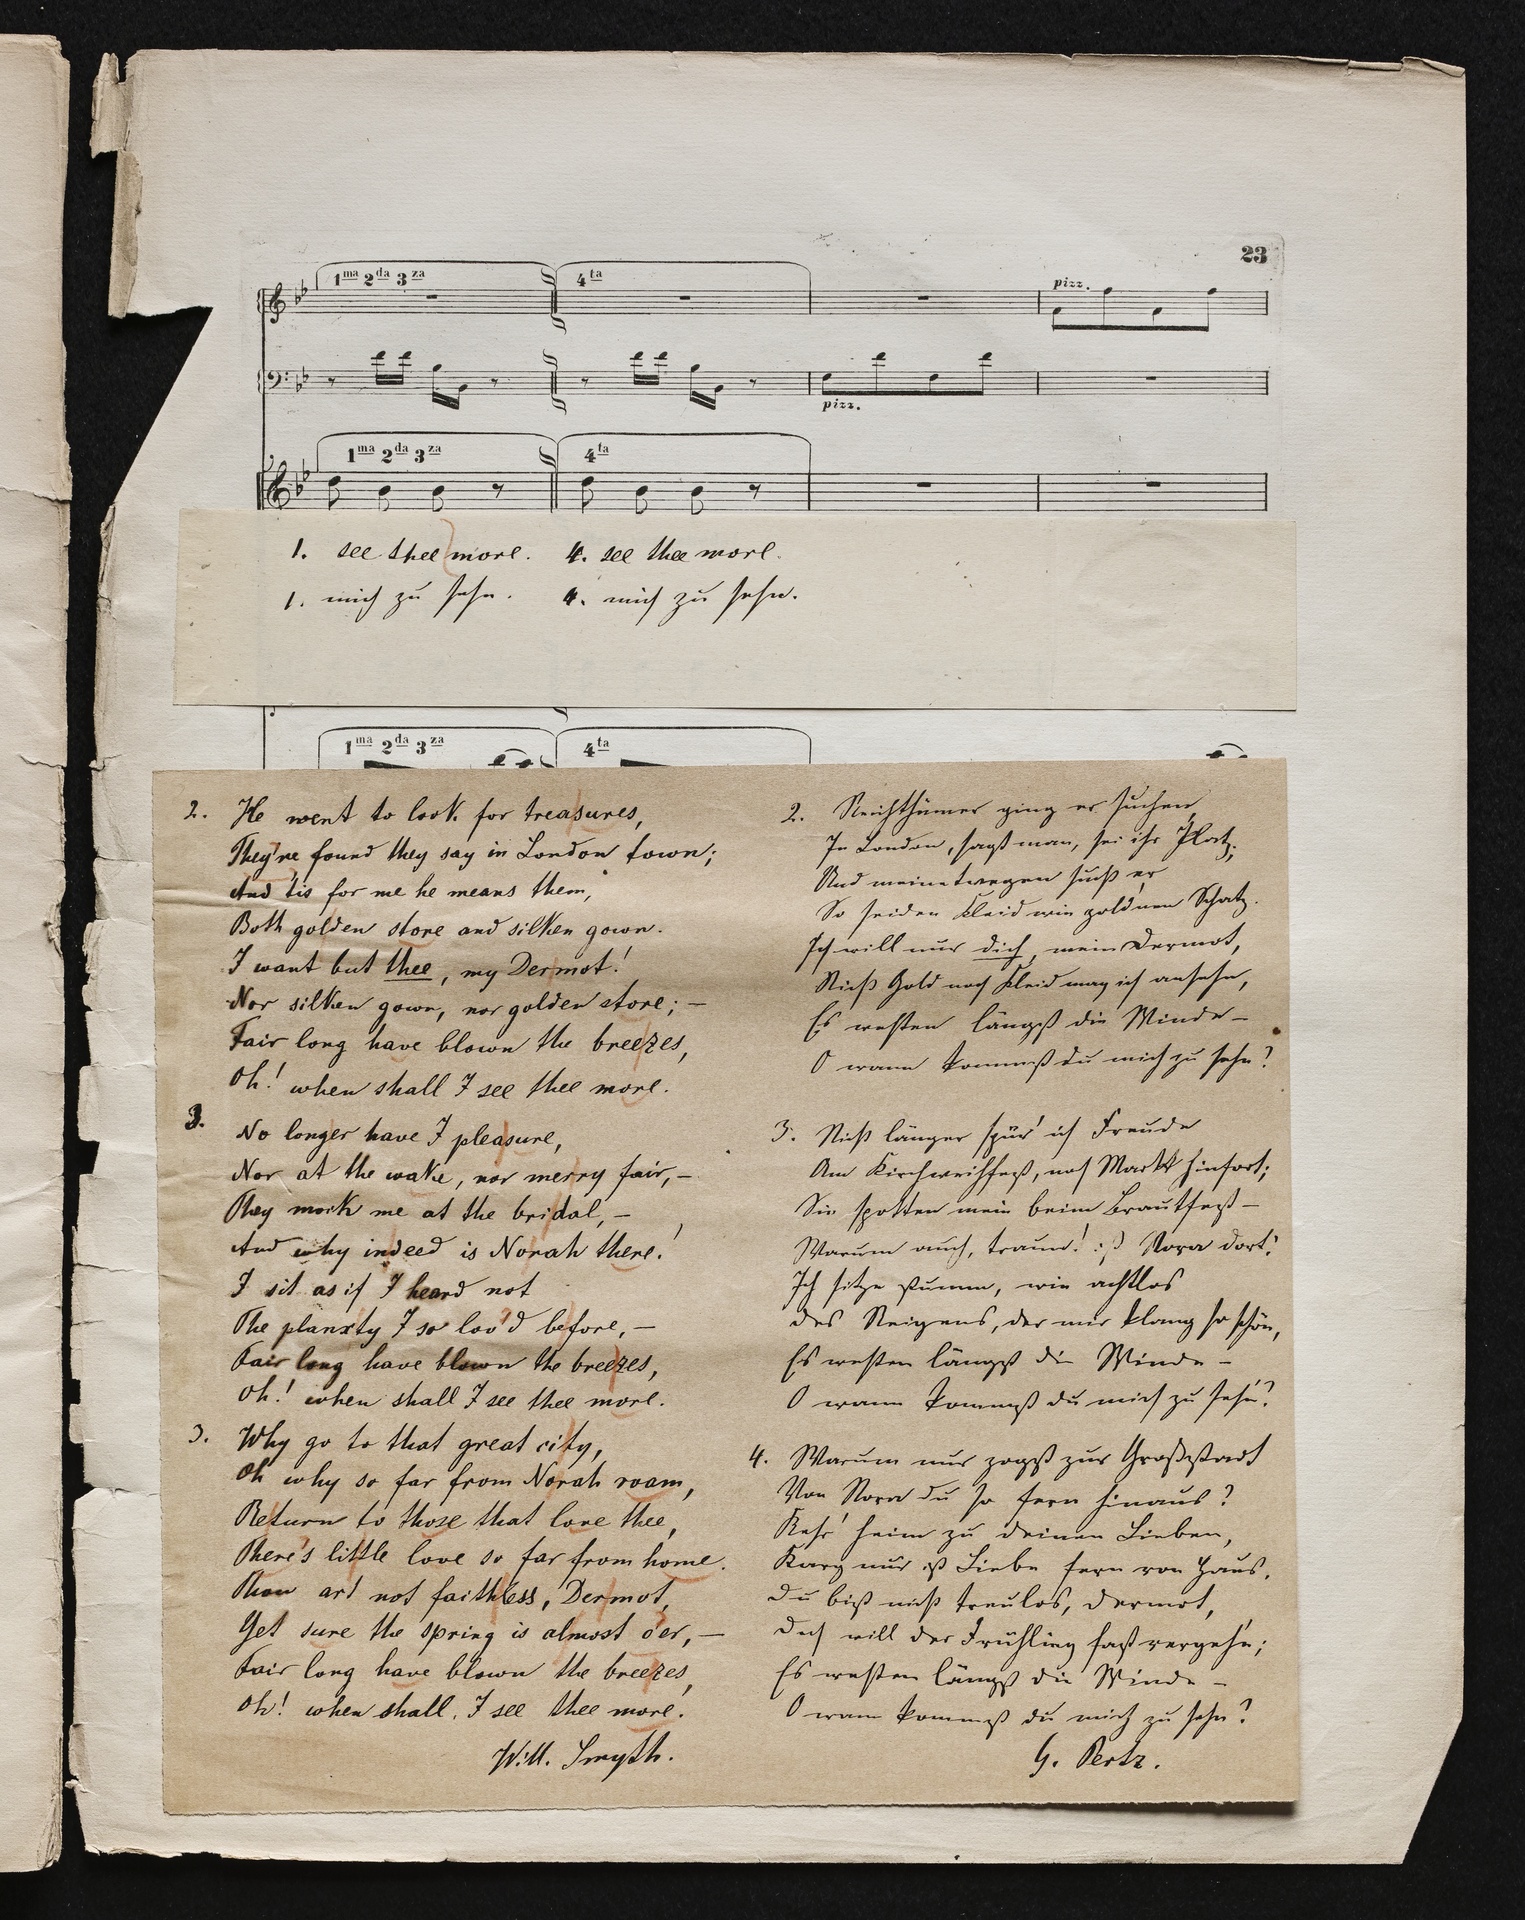 23
1ma 2da 3za 4ta
pizz.
pizz.
1ma 2da 3za 4ta
1. see thee more. 4. see thee more.
1. mich zu sehn. 4. mich zu sehn.
1ma 2da 3za 4ta
2. He went to look for treasures,
They're found they say in London town;
And 'tis for me he means them,
Both golden store and silken gown.
I want but thee, my Dermot!
Nor silken gown, nor golden store; –
Fair long have blown the breezes,
Oh! when shall I see thee more.
3. No longer have I pleasure,
Nor at the wake, nor merry fair, –
They mock me at the bridal, –
And why indeed is Norah there!
I sit as if I heard not
The planxty I so lov'd before, –
Fair long have blown the breezes,
Oh! when shall I see thee more.
3. Why go to that great city,
Oh why so far from Norah roam,
Return to those that love thee,
There's little love so far from home.
Thou art not faithless, Dermot,
Yet sure the spring is almost o'er, –
Fair long have blown the breezes,
Oh! when shall I see thee more!
Will. Smyth.
2. Reichthümer ging er suchen,
In London, sagt man, sei ihr Platz;
Und meinetwegen sucht er
So seiden Kleid wie gold'nen Schatz.
Ich will nur dich, mein Dermot,
Nicht Gold noch Kleid mag ich ansehn,
Es wehten längst die Winde –
O wann kommst du mich zu sehn?
3. Nicht länger spür' ich Freude
Am Kirchweihfest, noch Markt hinfort;
Sie spotten mein beim Brautfest –
Warum auch, traun! ist Nora dort?
Ich sitze stumm, wie achtlos
Des Reigens, der mir klang so schön,
Es wehten längst die Winde –
O wann kommst du mich zu sehn?
4. Warum nur zogst zur Großstadt
Von Nora du so fern hinaus?
Kehr' heim zu deinen Lieben,
Karg nur ist Liebe fern von Haus.
Du bist nicht treulos, Dermot,
Doch will der Frühling fast vergehn;
Es wehten längst die Winde –
O wann kommst du mich zu sehn?
G. Pertz.